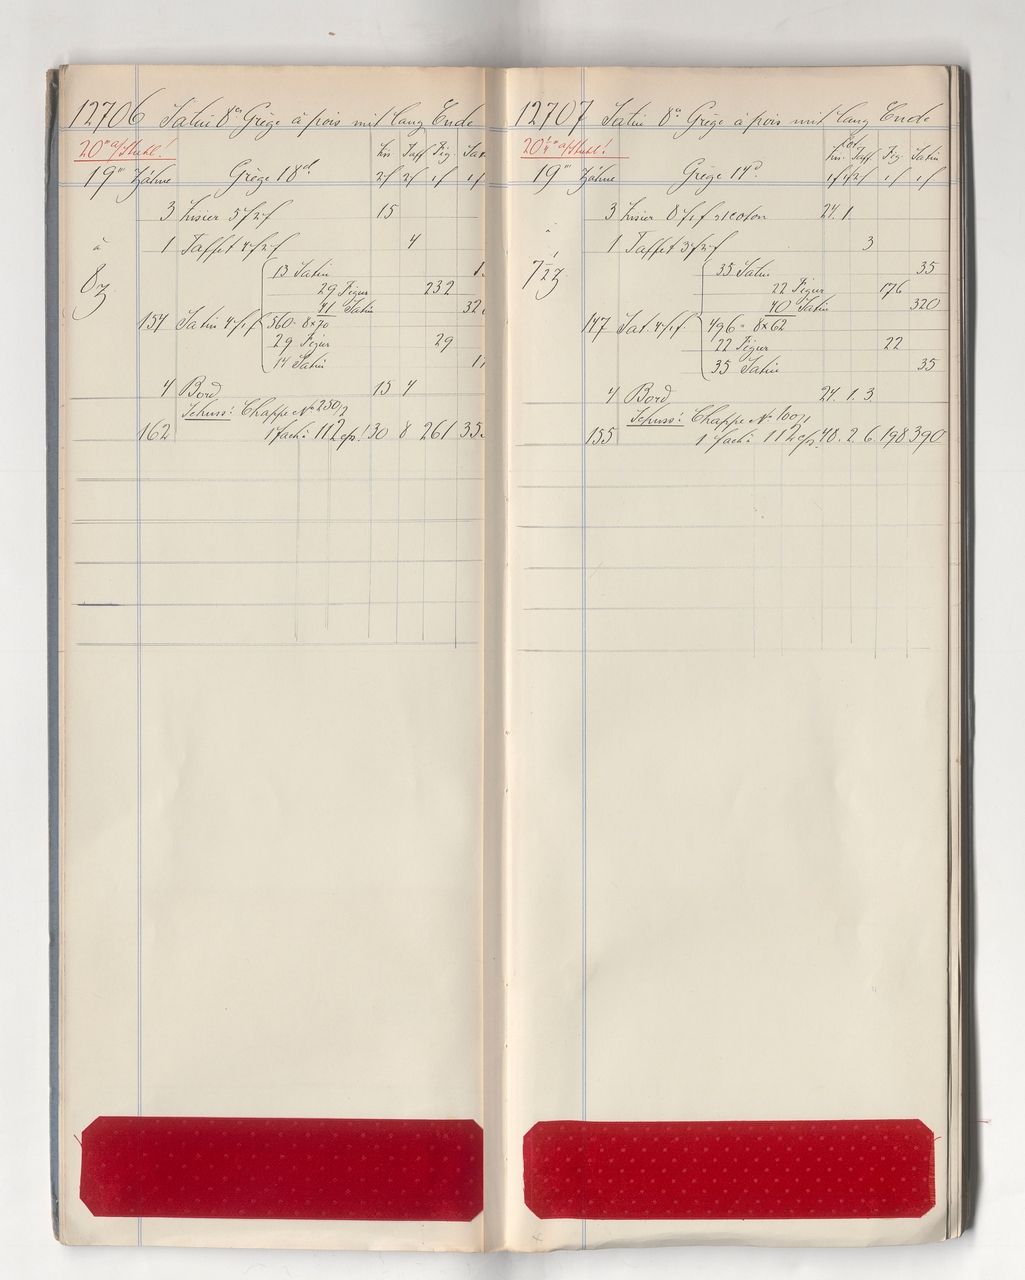 12706 Satin 8er Grège à pois mit lang Ende
20''' a/Stuhl!
Lis. Taff Fig. Sat
19''' Zähne Grège 18d
2f 2f 1f 1f
3 Lisier 5f2f 15
à 1 Taffet 4f2f 4
8z
13 Satin 1
29 Figur 232
41 Satin 32
154 Satin 4f1f 560 = 8x70
29 Figur 29
14 Satin 1
4 Bord 15 4
Schuss: Chappe No 250/2
162 1 fach à 112 cps! 30 8 261 35
12707 Satin 8er Grège à pois mit lang Ende
20 1/4''' a/Stuhl!
Lis. Taff. Fig. Satin
19''' Zähne Grège 14d
1f 1f 2f 1f 1f
3 Lisier 8f1f 24. 1
à 1 Taffet 3f2f 3
7 1/2 z
35 Satin 35
22 Figur 176
40 Satin 320
147 Sat. 4f1f 496 = 8x62
22 Figur 22
35 Satin 35
4 Bord 24. 1. 3.
Schuss: Chappe No 100/1
155 1 fach à 112 cps. 48. 2. 6. 198 390